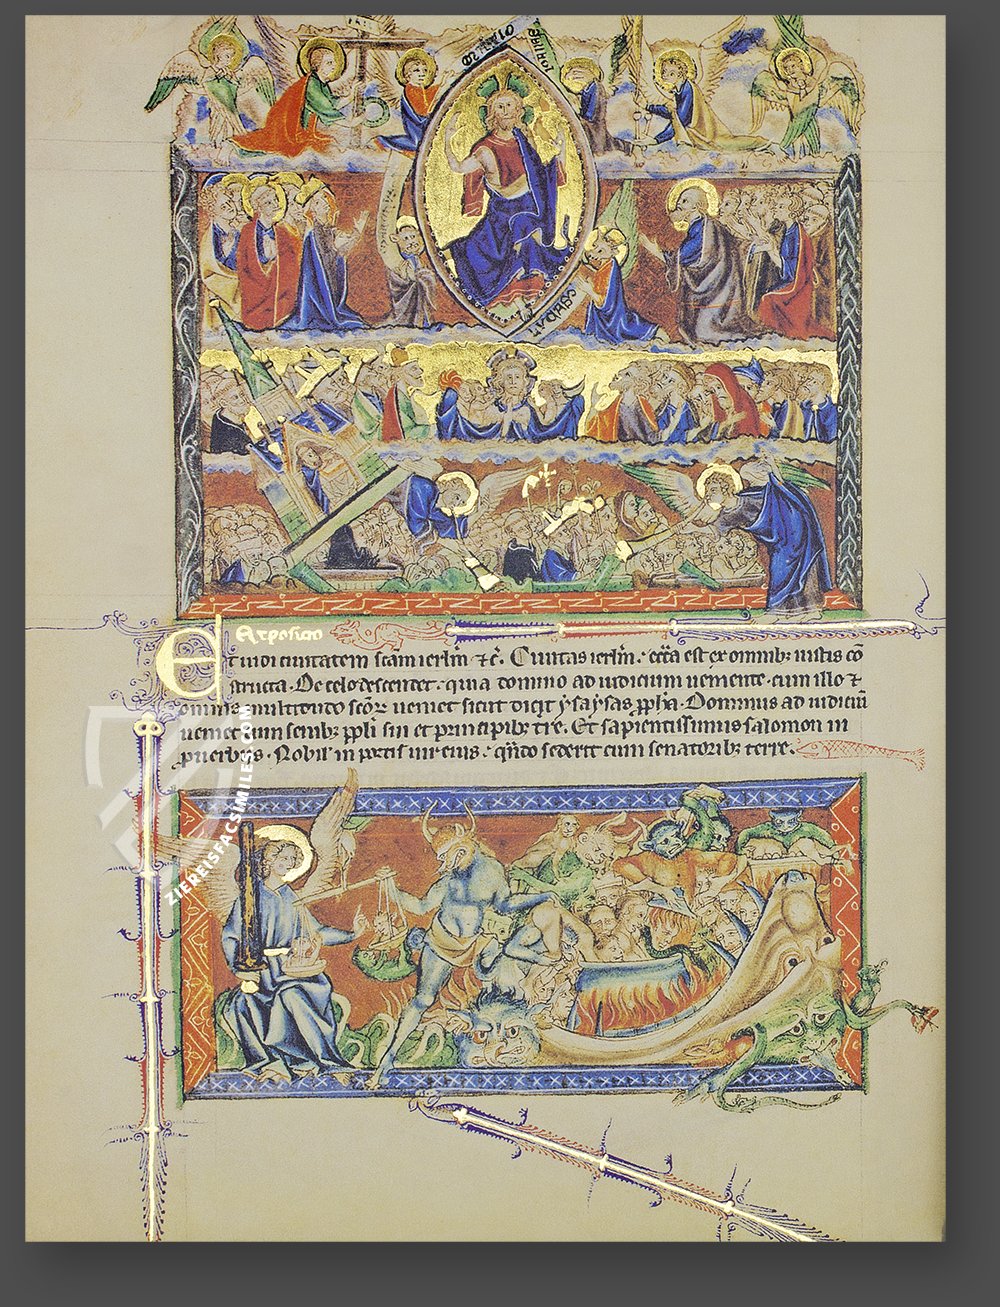 Expositio
Et vidi ciuitatem scam ierlm ⁊c. Ciuitas ierlm . ecca est ex omnib; iustis cō
structa . De celo descendet . quia domino ad iudicium ueniente . cum illo ⁊
omnis multitudo scōꝝ ueniet sicut dicit ysayas ppha . Dominus ad iudiciū
ueniet cum senib; ppli sui et principib; tre . Et sapientissimus salomon in
puerbiis . Nobil' in portis uir eius . qn̄do sederit cum senatorib; terre .
ZIEREISFACSIMILES.COM